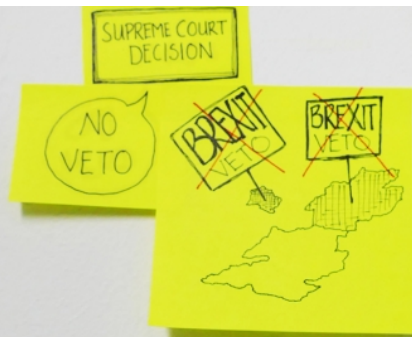 SUPREME COURT
DECISION
NO
VETO
BREXIT
VETO
BREXIT
VETO